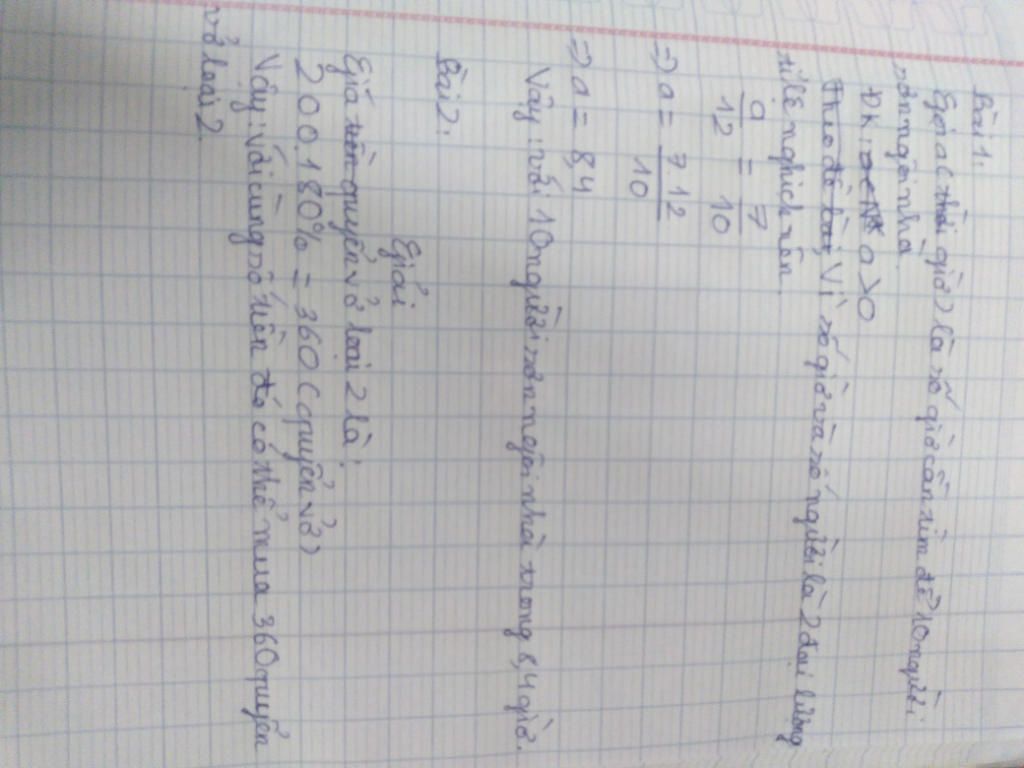 Bài 1:
Gọi a (thời giờ) là số giờ cần tìm để 10 người
sơn ngôi nhà.
ĐK: a∈N* a >0
Theo đề bài, Vì số giờ và số người là 2 đại lượng
tỉ lệ nghịch nên.
a/12 = 7/10
=> a = 7.12/10
=> a = 8,4
Vậy: với 10 người sơn ngôi nhà trong 8,4 giờ.
Bài 2:
Giải
Giá tiền quyển vở loại 2 là:
200.180% = 360 (quyển vở)
Vậy: Với cùng số tiền đó có thể mua 360 quyển
vở loại 2.